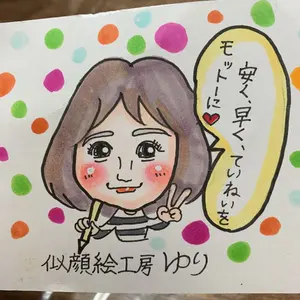 安く、早く、ていねいを
モットーに♥
似顔絵工房 ゆり